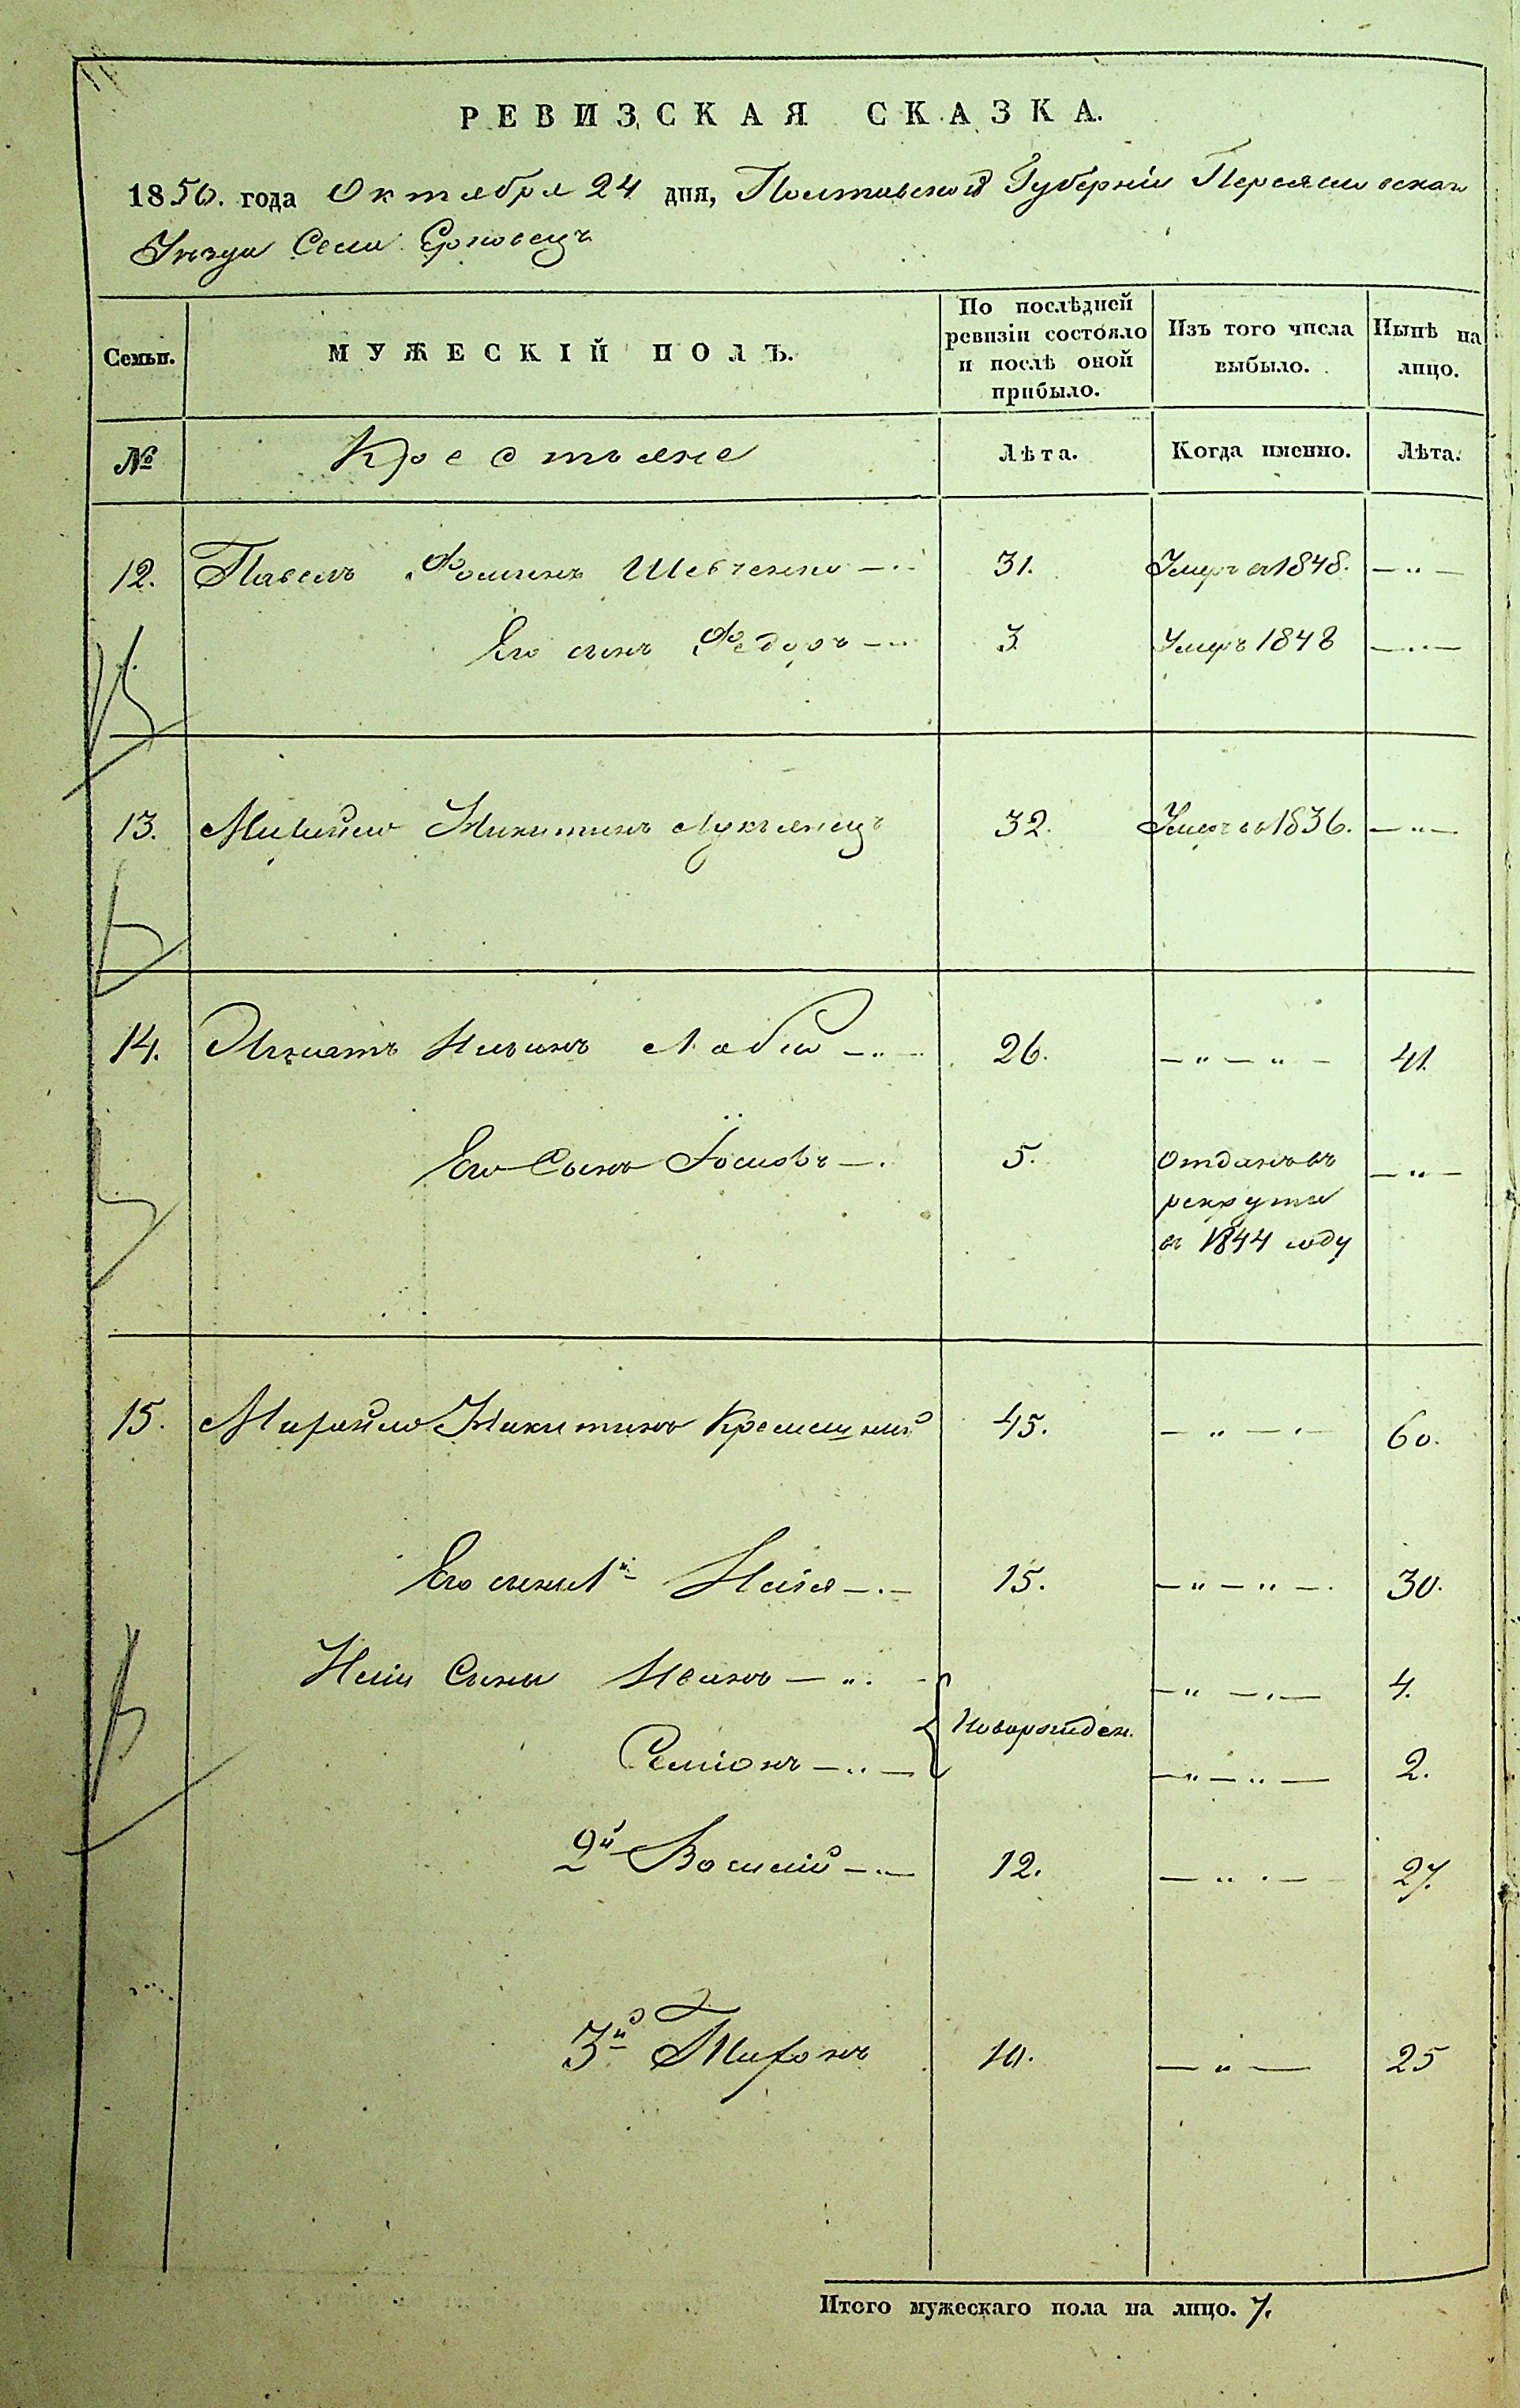 РЕВИЗСКАЯ СКАЗКА.
1850. года Октября 24 дня, Полтавской Губерніи Переяславскаго
Уѣзда Села Ерковецъ
Семьи.
МУЖЕСКІЙ ПОЛЪ.
По послѣдней
ревизіи состояло
и послѣ оной
прибыло.
Изъ того числа
выбыло.
Нынѣ на
лицо.
№
Крестьяне
Лѣта.
Когда именно.
Лѣта.
12. Павелъ Фоминъ Шевченко 31. Умеръ въ 1848.
Его сынъ Федоръ 3 Умеръ 1848
13. Михайло Никитинъ Лукьянецъ 32. Умеръ въ 1836.
14. Игнатъ Ильинъ 26. 41.
Его Сынъ Іосифъ 5. Отданъ въ
рекруты
въ 1844 году
15. Михайло Никитинъ 45. 60.
Его сыны 1й Илія 15. 30.
Иліи Сыны Иванъ 4.
Новорожден.
Семіонъ 2.
2й Василій 12. 27.
3й Тихонъ 10. 25
Итого мужескаго пола на лицо. 7.